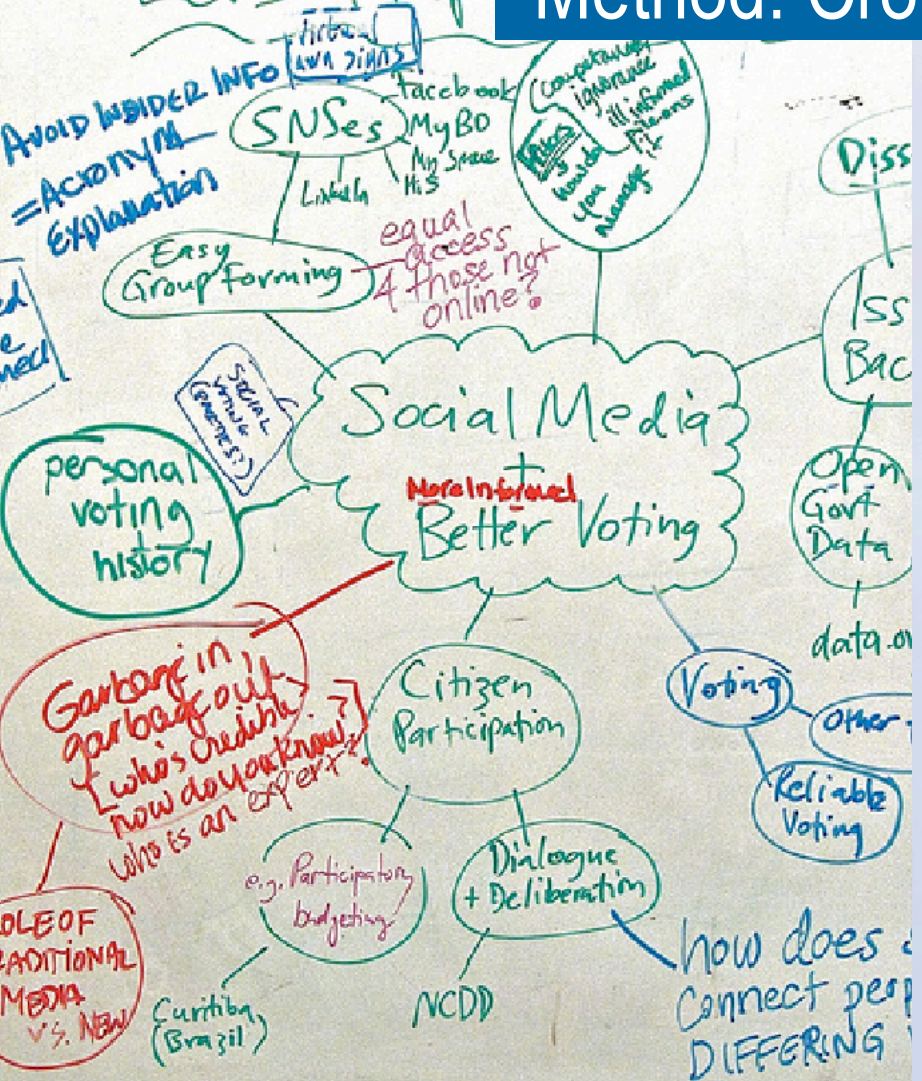 Method: Cro
AVOID INSIDER INFO
=Acronym
Explanation
SNSes
Facebook
MyBO
My Space
Hi5
LinkedIn
ignorance
ill informed
how do
you
manage it
Diss
Easy
Group Forming
equal
access
4 those not
online?
Iss
Bac
SOCIAL
VOTING
Social Media
+
More Informed
Better Voting
personal
voting
history
Open
Gov't
Data
data.
Garbage in,
garbage out
who's credible
how do you know?
who is an expert?
Citizen
Participation
Voting
Other
Reliable
Voting
e.g. Participatory
budgeting
Dialogue
+ Deliberation
OLE OF
RADITIONAL
MEDIA
VS. NEW
Curitiba,
(Brazil)
NCDD
how does
Connect peop
DIFFERING